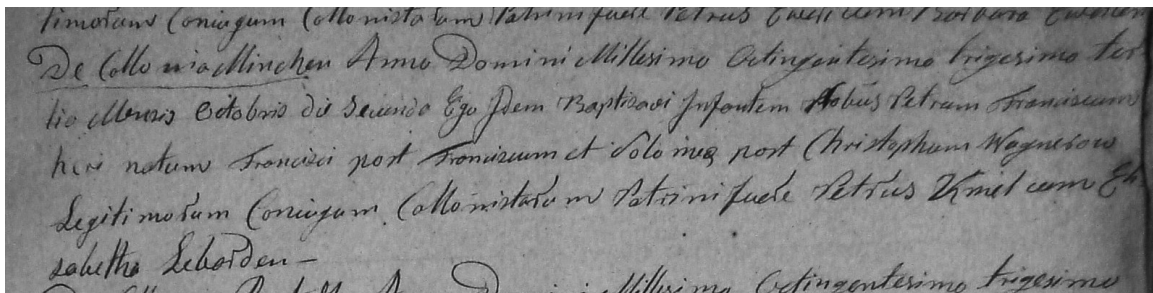 timorum Coniugum Collonistarum Patrini fuere Petrus cum Barbara
De Collonia Minchen Anno Domini Millesimo Octingentesimo trigesimo ter
tio Mensis Octobris die Secunda Ego Idem Baptisavi Infantem Petrum Franciscum
heri natum Francisci post Franciscum et post Christophum Wagnerow
Legitimorum Coniugum Collonistarum Patrini fuere Petrus Kmel cum Eli
sabetha Lebarden –
Millesimo Octingentesimo trigesimo